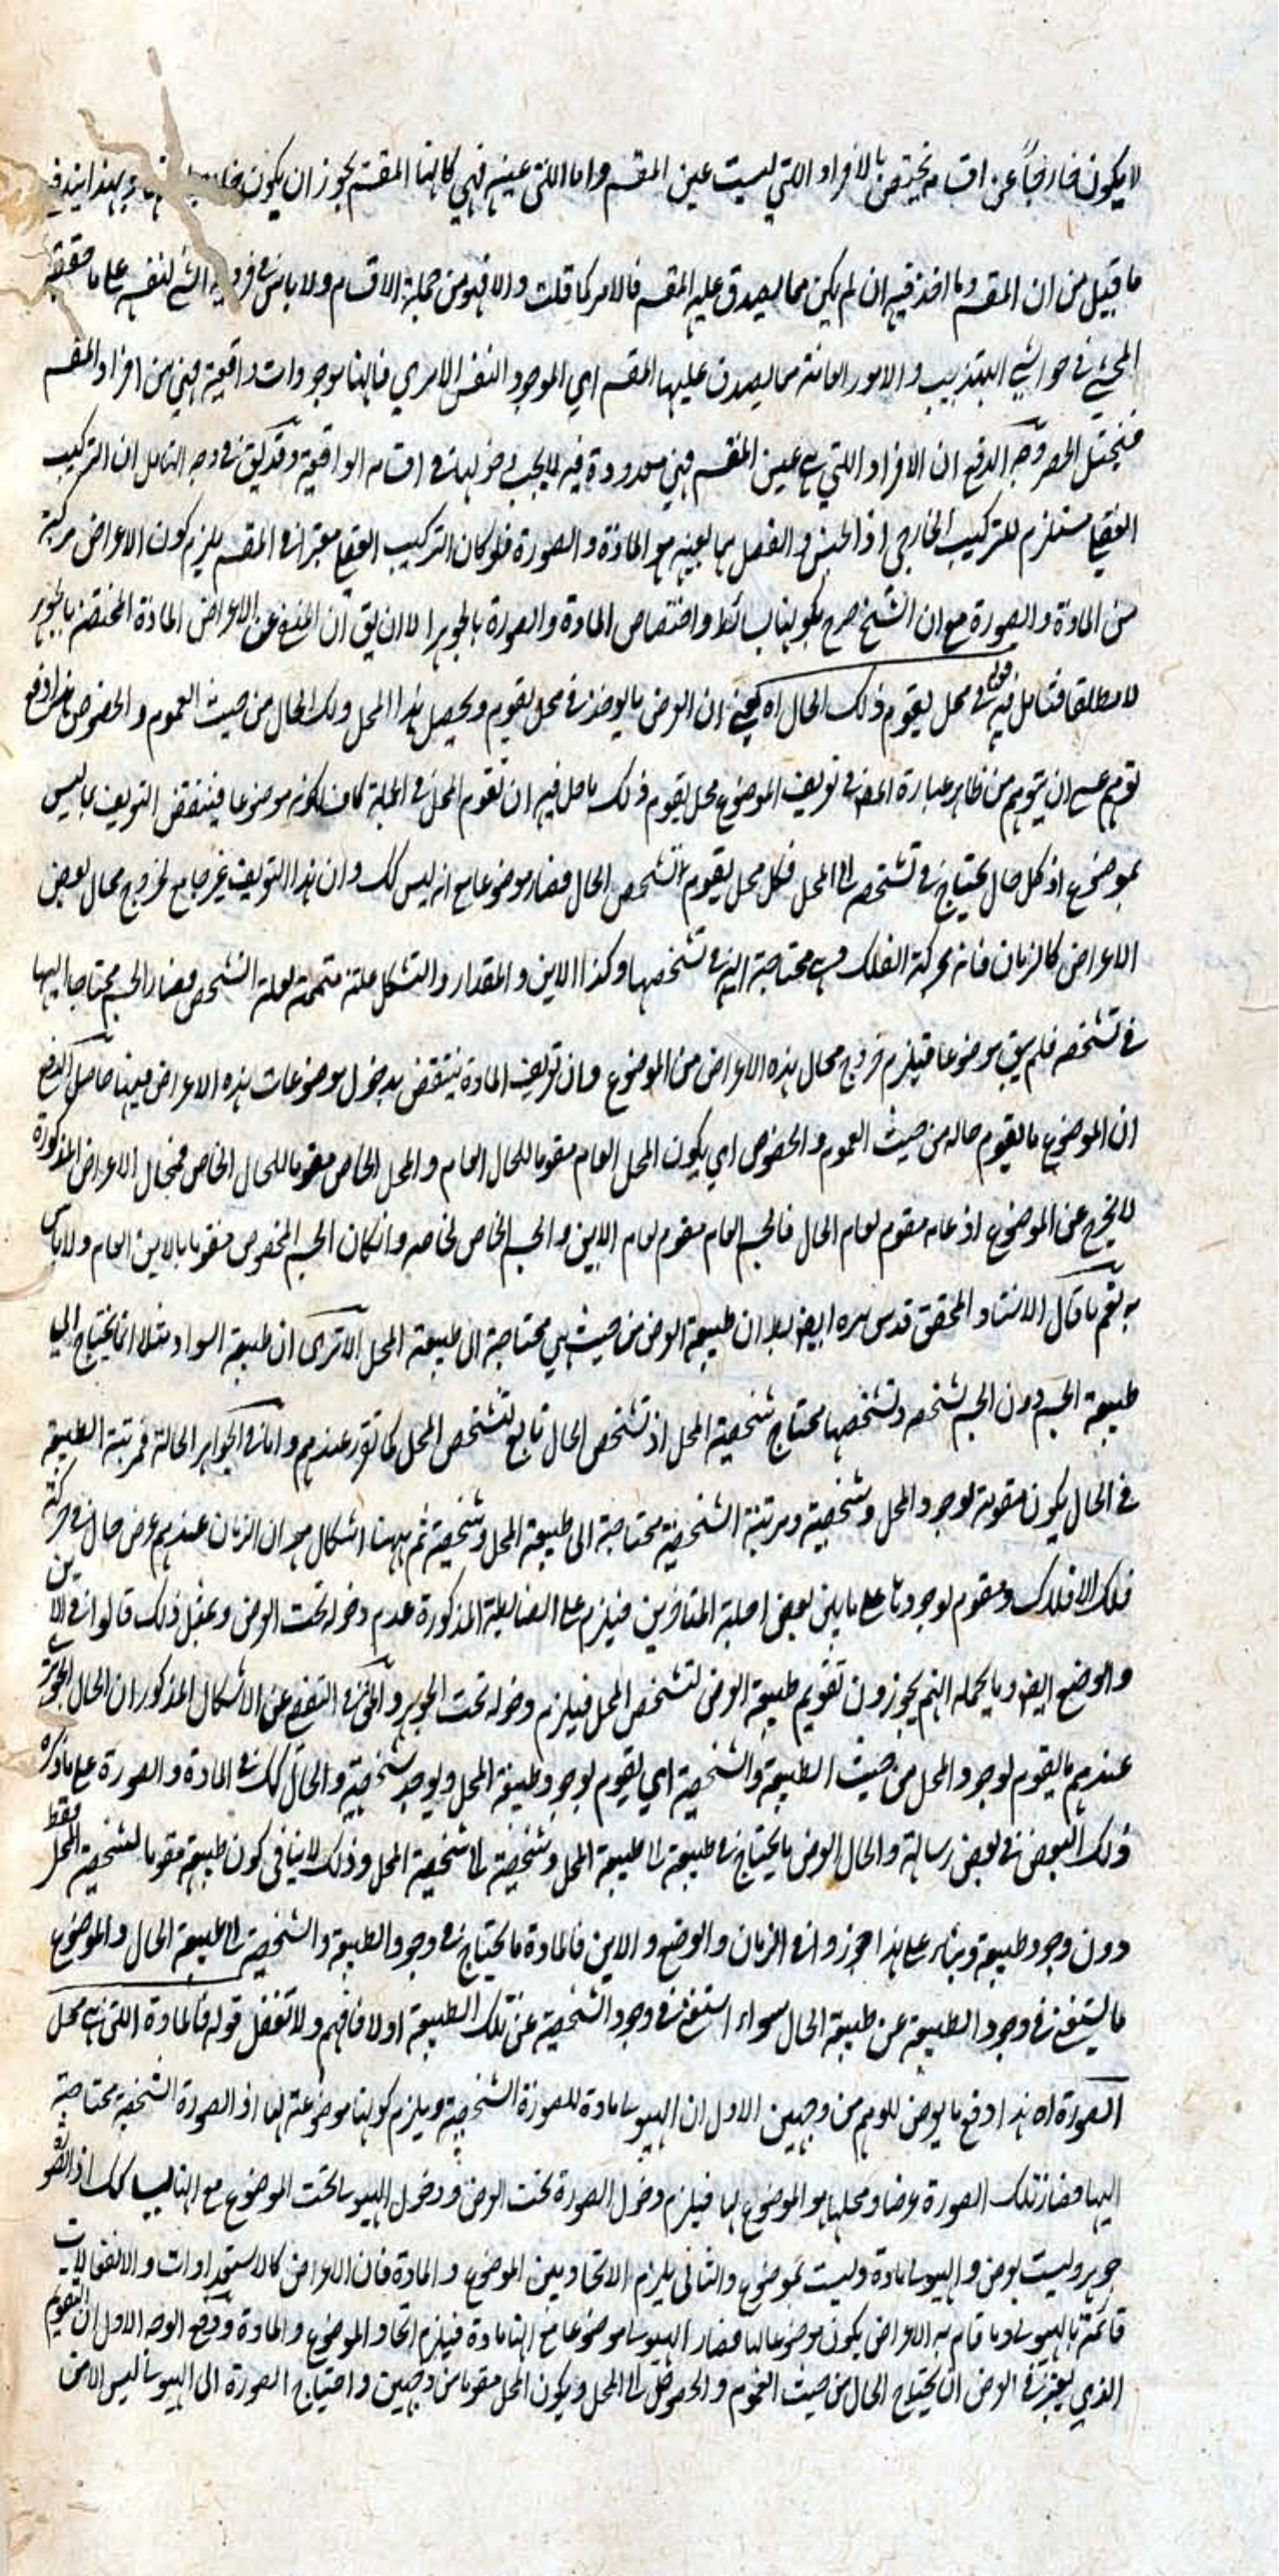 لا يكون خارجاً عن اقسامه يختص بالافراد اللتي ليست عين المقسم واما اللتي عينه فهي كانها المقسم يجوز ان يكون وبهذا يندفع
ما قيل من ان المقسم وما اخذ فيه ان لم يكن مما يصدق عليه المقسم فالامر كما قلت والا فهو من جملة الاقسام ولا باس في فردية الشئ لنفسه على ما حققه
المحشي في حواشي التهذيب والامور العامة مما يصدق عليها المقسم اي الموجود النفس الامري فانها موجودات واقعية فهي من افراد المقسم
فيختل الحصر وجه الدفع ان الافراد اللتي هي عين المقسم فهي معدودة فيه لا يجب دخولها في اقسامه الواقعية وقد يقق في وجه التامل ان التركيب
العقلي مستلزم للتركيب الخارجي اذ الجنس والفصل هما بعينه هو المادة والصورة فلو كان التركيب العقلي معتبرا في المقسم يلزم كون الاعراض مركبة
من المادة والصورة مع ان الشيخ صرح بكونها بسائط واختصاص المادة والصورة بالجوهر الا ان يق ان المنفي عن الاعراض المادة المختصة بالجوهر
لا مطلقا فتامل فيه قوله في محل يقوم ذلك الحال اه يعني ان العرض ما يوجد في محل يقوم ويحصل هذا المحل ذلك الحال من حيث العموم والخصوص هذا دفع
توهم عسى ان يتوهم من ظاهر عبارة المصنف في تعريف الموضوع محل يقوم ذلك ما حل فيه ان تقوم المحل في الجملة كاف لكونه موضوعا فينتقض التعريف بما ليس
بموضوع اذ كل حال يحتاج في تشخصه الى المحل فكل محل يقوم تشخص الحال فصار موضوعا مع انه ليس كك وان هذا التعريف غير جامع لخروج محال بعض
الاعراض كالزمان فانه حركة الفلك وهي محتاجة اليه في تشخصها وكذا الاين والمقدار والتشكل علته متممة لعلة التشخص فصار الجسم محتاجا اليها
في تشخصه فلم يبق موضوعا فيلزم خروج محال هذه الاعراض من الموضوع وان تعريف المادة ينتقض بدخول موضوعات هذه الاعراض فيها حاصل الدفع
ان الموضوع ما يقوم حاله من حيث العموم والخصوص اي يكون المحل العام مقوما للحال العام والمحل الخاص مقوما للحال الخاص فمحال الاعراض المذكورة
لا يخرج عن الموضوع اذ عامه مقوم لعام الحال فالجسم العام مقوم لعام الاين والجسم الخاص لخاصه وان كان الجسم المخصوص متقوما بالاين العام ولا باس
به نعم ما قال الاستاد المحقق قدس سره ايضا ان طبيعة العرض من حيث هي محتاجة الى طبيعة المحل الا ترى ان طبيعة السواد مثلا انما يحتاج الى
طبيعة الجسم دون الجسم لشخصه وتشخصها محتاج شخصية المحل اذ تشخص الحال تابع لتشخص المحل كما تقرر عندهم واما في الجواهر الحالة فمرتبة الطبيعة
في الحال يكون مقومة لوجود المحل وشخصية ومرتبة الشخصية محتاجة الى طبيعة المحل وشخصية ثم ههنا اشكال هو ان الزمان عندهم عرض حال في حركة
فلك الافلاك ومقوم لوجودها على ما بين بعض اجلة المتاخرين فيلزم على الضابطة المذكورة عدم دخوله تحت العرض وبمثل ذلك قالوا في الاين
والوضع ايضا وبالجملة انهم يجوزون تقويم طبيعة العرض لتشخص المحل فيلزم دخوله تحت الجوهر والحق في التفصي عن الاشكال المذكور ان الحال الجوهر
عندهم ما يقوم لوجود المحل من حيث الطبيعة والشخصية اي يقوم لوجود طبيعة المحل ولوجود شخصية والحال كك في المادة والصورة على ما ذكره
ذلك البعض في بعض رسالة والحال العرض ما يحتاج في طبيعة الى طبيعة المحل وشخصية الى شخصية المحل وذلك لا ينافي كون طبيعة مقوما لشخصية المحل فقط
دون وجود طبيعة وبناء على هذا جوزوا في الزمان والوضع والاين فالمادة ما يحتاج في وجود الطبيعة والشخصية الى طبيعة الحال والموضوع
ما يستغني في وجود الطبيعة عن طبيعة الحال سواء استغنى في وجود الشخصية عن تلك الطبيعة اولا فافهم ولا تغفل قوله فالمادة اللتي هي محل
الصورة اه هذا دفع ما يعرض للوهم من وجهين الاول ان الهيولى مادة للصورة الشخصية ويلزم كونها موضوعة لها اذ الصورة الشخصية محتاجة
اليها فصار تلك الصورة عرضا ومحلها هو الموضوع لها فيلزم دخول الصورة تحت العرض ودخول الهيولى تحت الموضوع مع انها ليسا كك اذ الصورة
جوهر وليست بعرض والهيولى مادة وليست بموضوع والثاني يلزم الاتحاد بين الموضوع والمادة فان الاعراض كالاستعدادات والانفعالات
قائمة بالهيولى وما قام به الاعراض يكون موضوعا لها فصار الهيولى موضوعا مع انها مادة فيلزم اتحاد الموضوع والمادة ودفع الوجه الاول ان التقويم
الذي يعتبر في العرض ان يحتاج الحال من حيث العموم والخصوص الى المحل ويكون المحل مقوما من وجهين واحتياج الصورة الى الهيولى ليس الا من